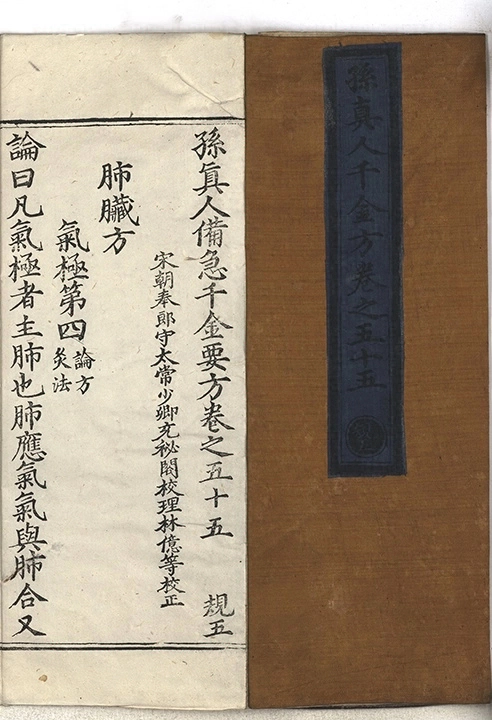 孫真人千金方卷之五十五
孫真人備急千金要方卷之五十五 規五
宋朝奉郎守太常少卿充秘閣校理林億等校正
肺臟方
氣極第四 論方
灸法
論曰凡氣極者主肺也肺應氣氣與肺合又